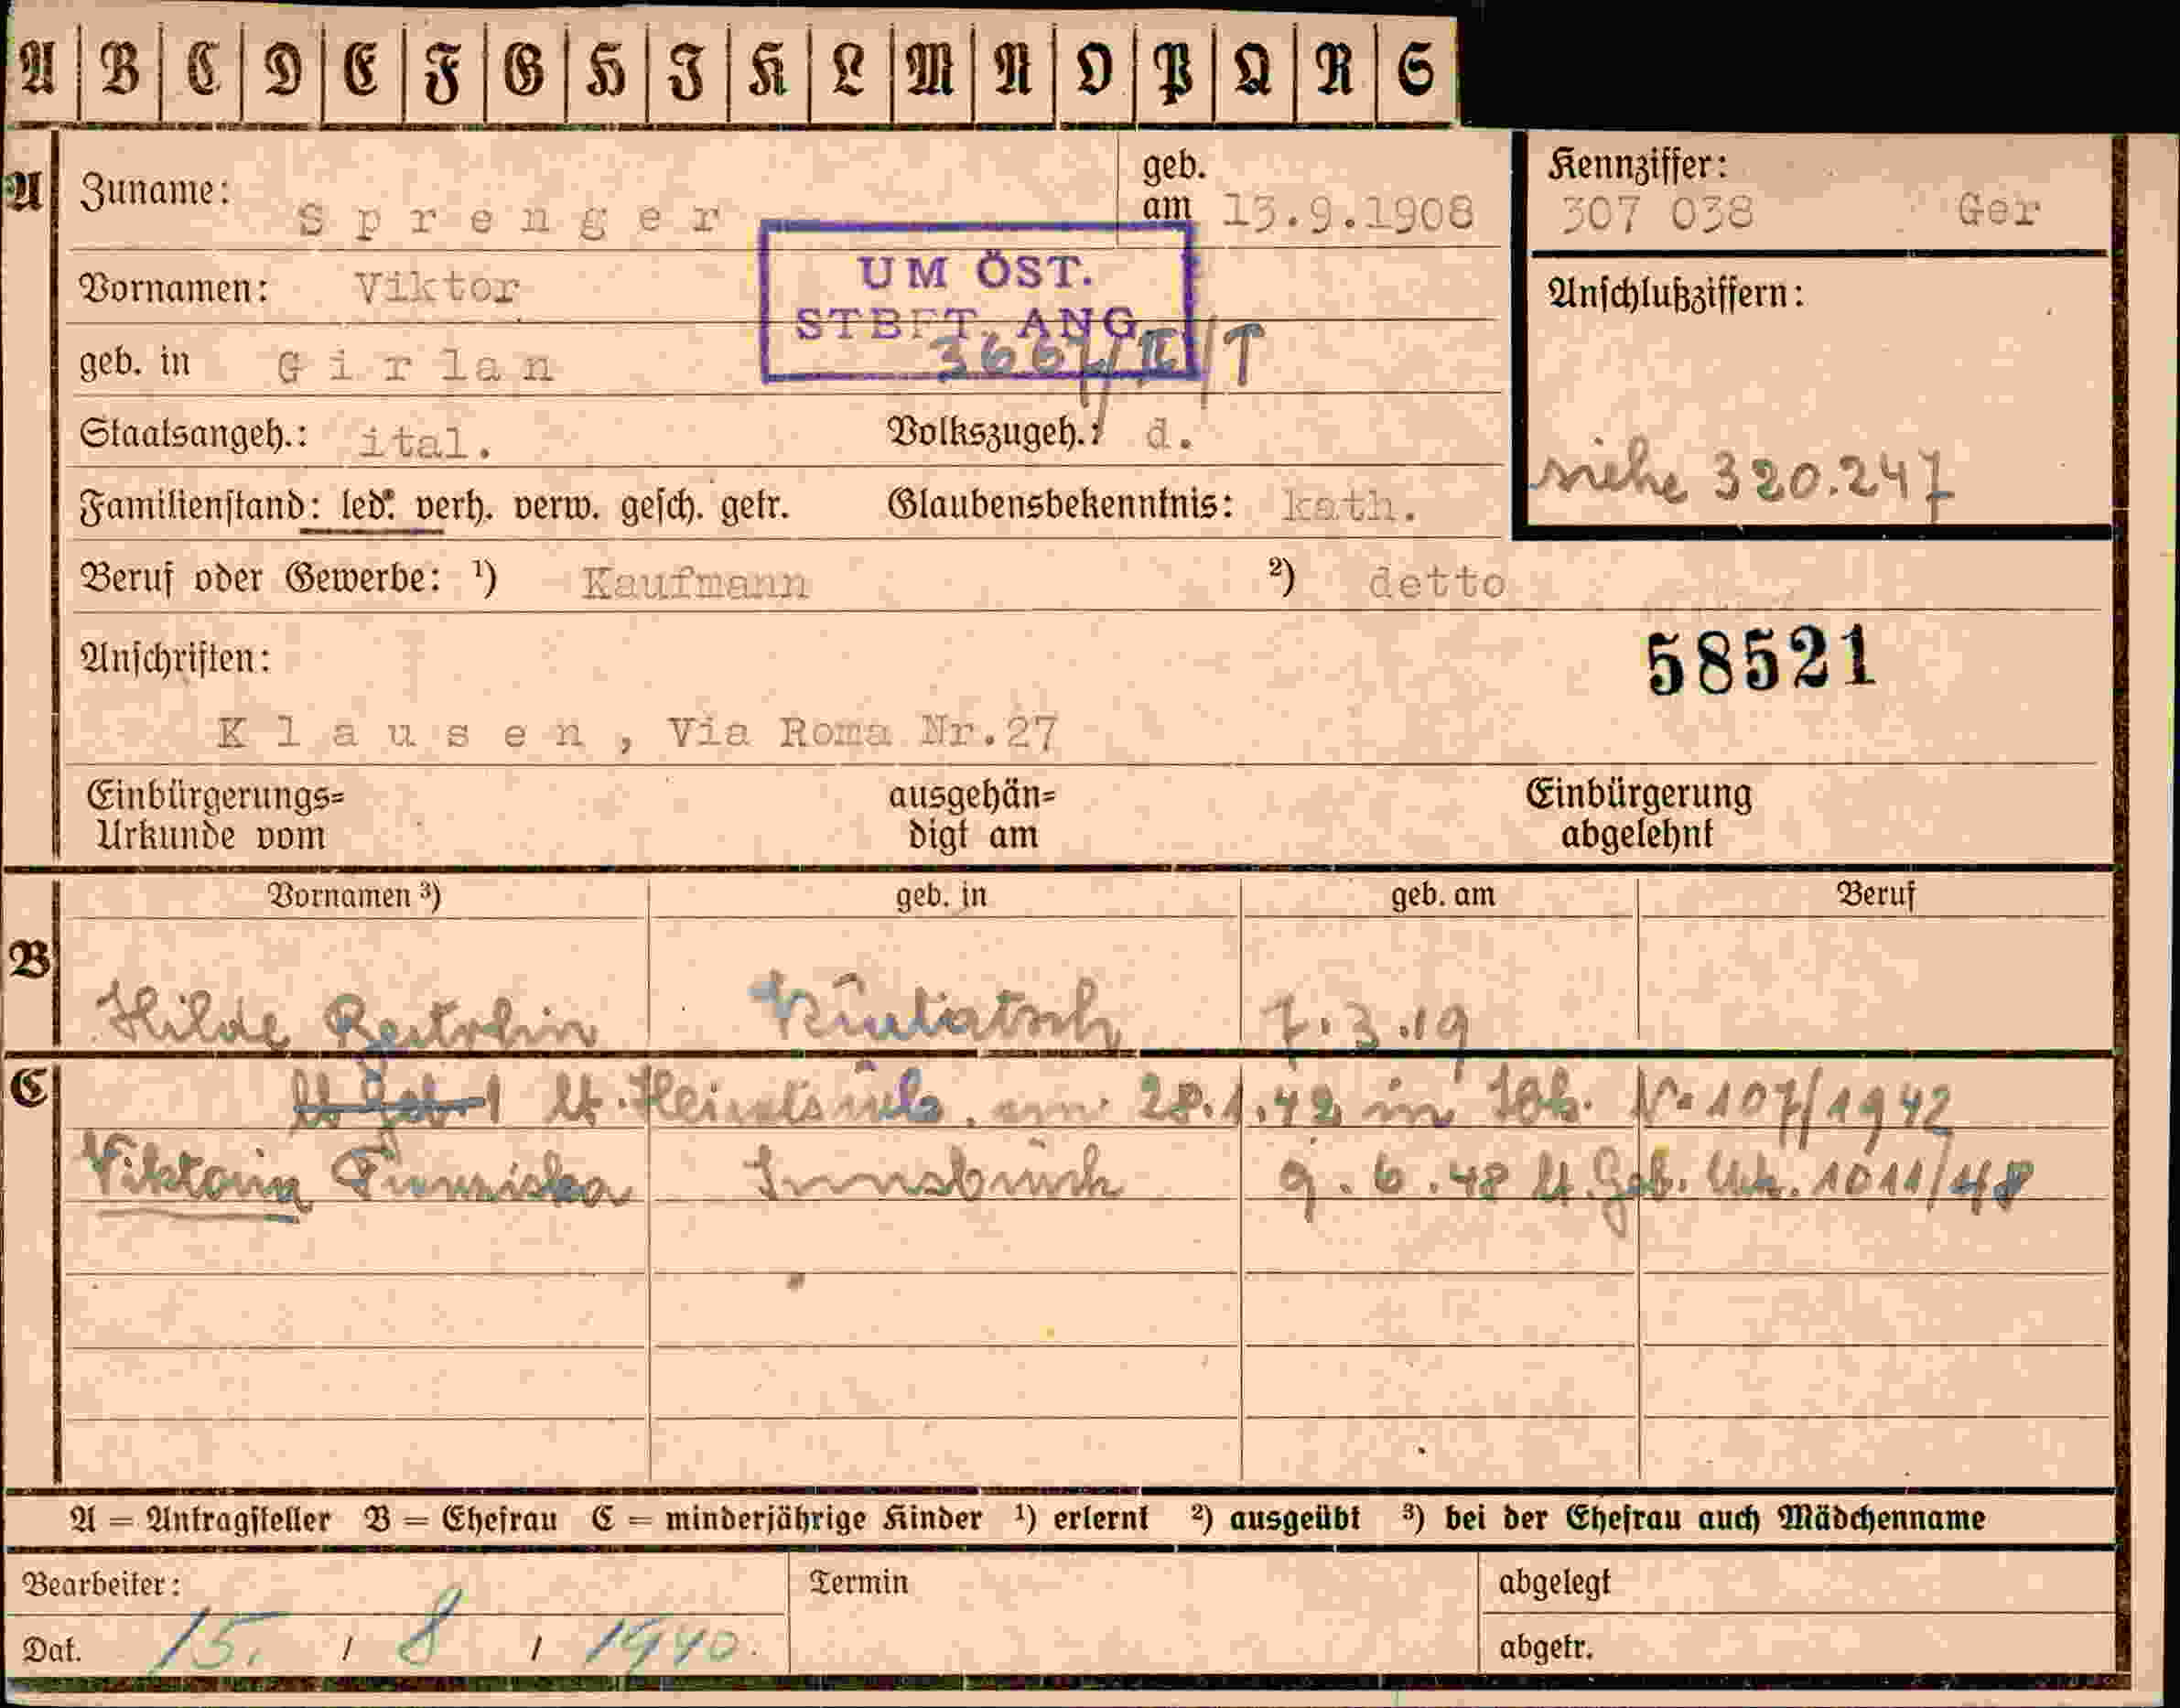 A B C D E F G H I K L M N O P Q R S
A
Zuname: Sprenger
geb. am 13.9.1908
Kennziffer:
307 038 Ger
Vornamen: Viktor
UM ÖST.
STBFT. ANG.
Anschlußziffern:
geb. in Girlan
Staatsangeh.: ital. Volkszugeh.: d.
siehe 320.247
Familienstand: led. verh. verw. gesch. getr. Glaubensbekenntnis: kath.
Beruf oder Gewerbe: ¹) Kaufmann ²) detto
Anschriften:
58521
Klausen, Via Roma Nr.27
Einbürgerungs=
Urkunde vom
ausgehän=
digt am
Einbürgerung
abgelehnt
Vornamen ³) geb. in geb. am Beruf
B
Hilde 7.3.19
C
lt. am 28.1.42 in Nr. 107/1942
Viktoria Franziska Innsbruck 9.6.48 lt. Geb. Urk. 1011/48
A = Antragsteller B = Ehefrau C = minderjährige Kinder ¹) erlernt ²) ausgeübt ³) bei der Ehefrau auch Mädchenname
Bearbeiter:
Termin
abgelegt
Dat. 15. / 8 / 1940.
abgetr.